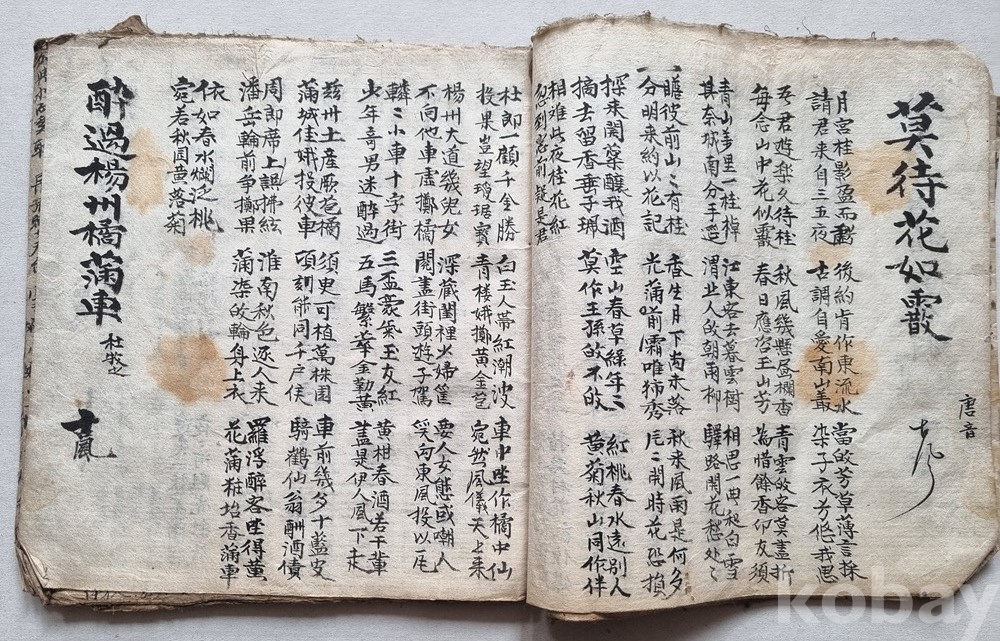 莫待花如霰
唐音
月宮桂影盈而虧 後約肯作東流水 當敀芳草薄言採
請君來自三五夜 古調自愛南山叢 染子衣芳悠我思
吾君遊樂久待桂 秋風幾懸昼欄香 青雲敀客莫盡折
每念山中花似霰 春日應 玉山芳 為惜餘香印友須
青山 里一桂棹 江東客去暮雲樹 相思一曲和白雪
其奈城南分手遲 渭北人敀朝雨柳 驛路開花愁处〻
瞻彼前山〻有桂 香生月下 未落 秋來風雨是何多
分明來約以花記 光蒲前霜唯特秀 片〻開時花恐損
採來開蘂釀我酒 空山春草綠年〻 紅桃春水遠別人
摘去留香垂子珮 莫作王孫敀不敀 黃菊秋山同作伴
相难此夜桂花紅
忽到窓前疑是君
醉過楊州橘蒲車 杜牧之
杜郎一顧千金勝 白玉人帶紅潮波 車中坐作橘中仙
投果豈望瓊琚寶 青楼娥擲黄金苞 宛然風儀天上來
楊州大道幾兒女 深藏閨裡少婦筐 要人女態或嘲人
不向他車虛擲橘 閙盡街頭遊子駕 笑 東風投以瓦
轔〻小車十字街 三盃豪氣玉友紅 黄柑春酒若干輩
少年奇男迷醉過 五馬繁華金勒黄 盖是伊人風下走
玆州土産厥苞橘 須臾可植萬株園 車前幾多十 叟
蒲城佳娥投彼車 頃刻 同千户侯 騎鶴仙翁酬酒債
周郎席上誤拂絃 淮南秋色逐人來 羅浮醉客坐得黄
潘岳輪前争擲果 蒲柒敀輪身上衣 花蒲粧 香蒲車
依如春水爛泛桃
宛若秋園黄落菊
kobay